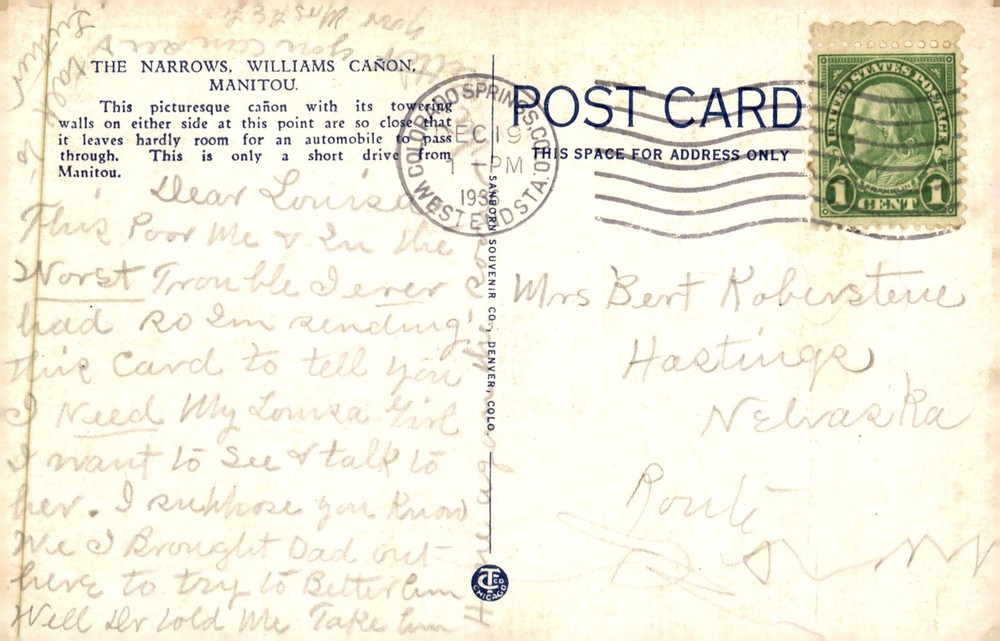 THE NARROWS, WILLIAMS CAÑON,
MANITOU.
This picturesque cañon with its towering
walls on either side at this point are so close that
it leaves hardly room for an automobile to pass
through. This is only a short drive from
Manitou.
Dear Louisa
This Poor Me & In the
Worst Trouble I ever
had so Im sending
this Card to tell you
I Need My Louisa Girl
I want to See & talk to
her. I suppose you Know
We I Brought Dad out
here to try to Better him
Well Dr told Me Take him
COLORADO SPRINGS, COLO.
DEC 19
1 - PM
193
WEST END STA.
SANBORN SOUVENIR CO., DENVER, COLO.
CT CO
CHICAGO
POST CARD
THIS SPACE FOR ADDRESS ONLY
UNITED STATES POSTAGE
FRANKLIN
1 CENT 1
Mrs Bert Koberstein
Hastings
Nebraska
Route